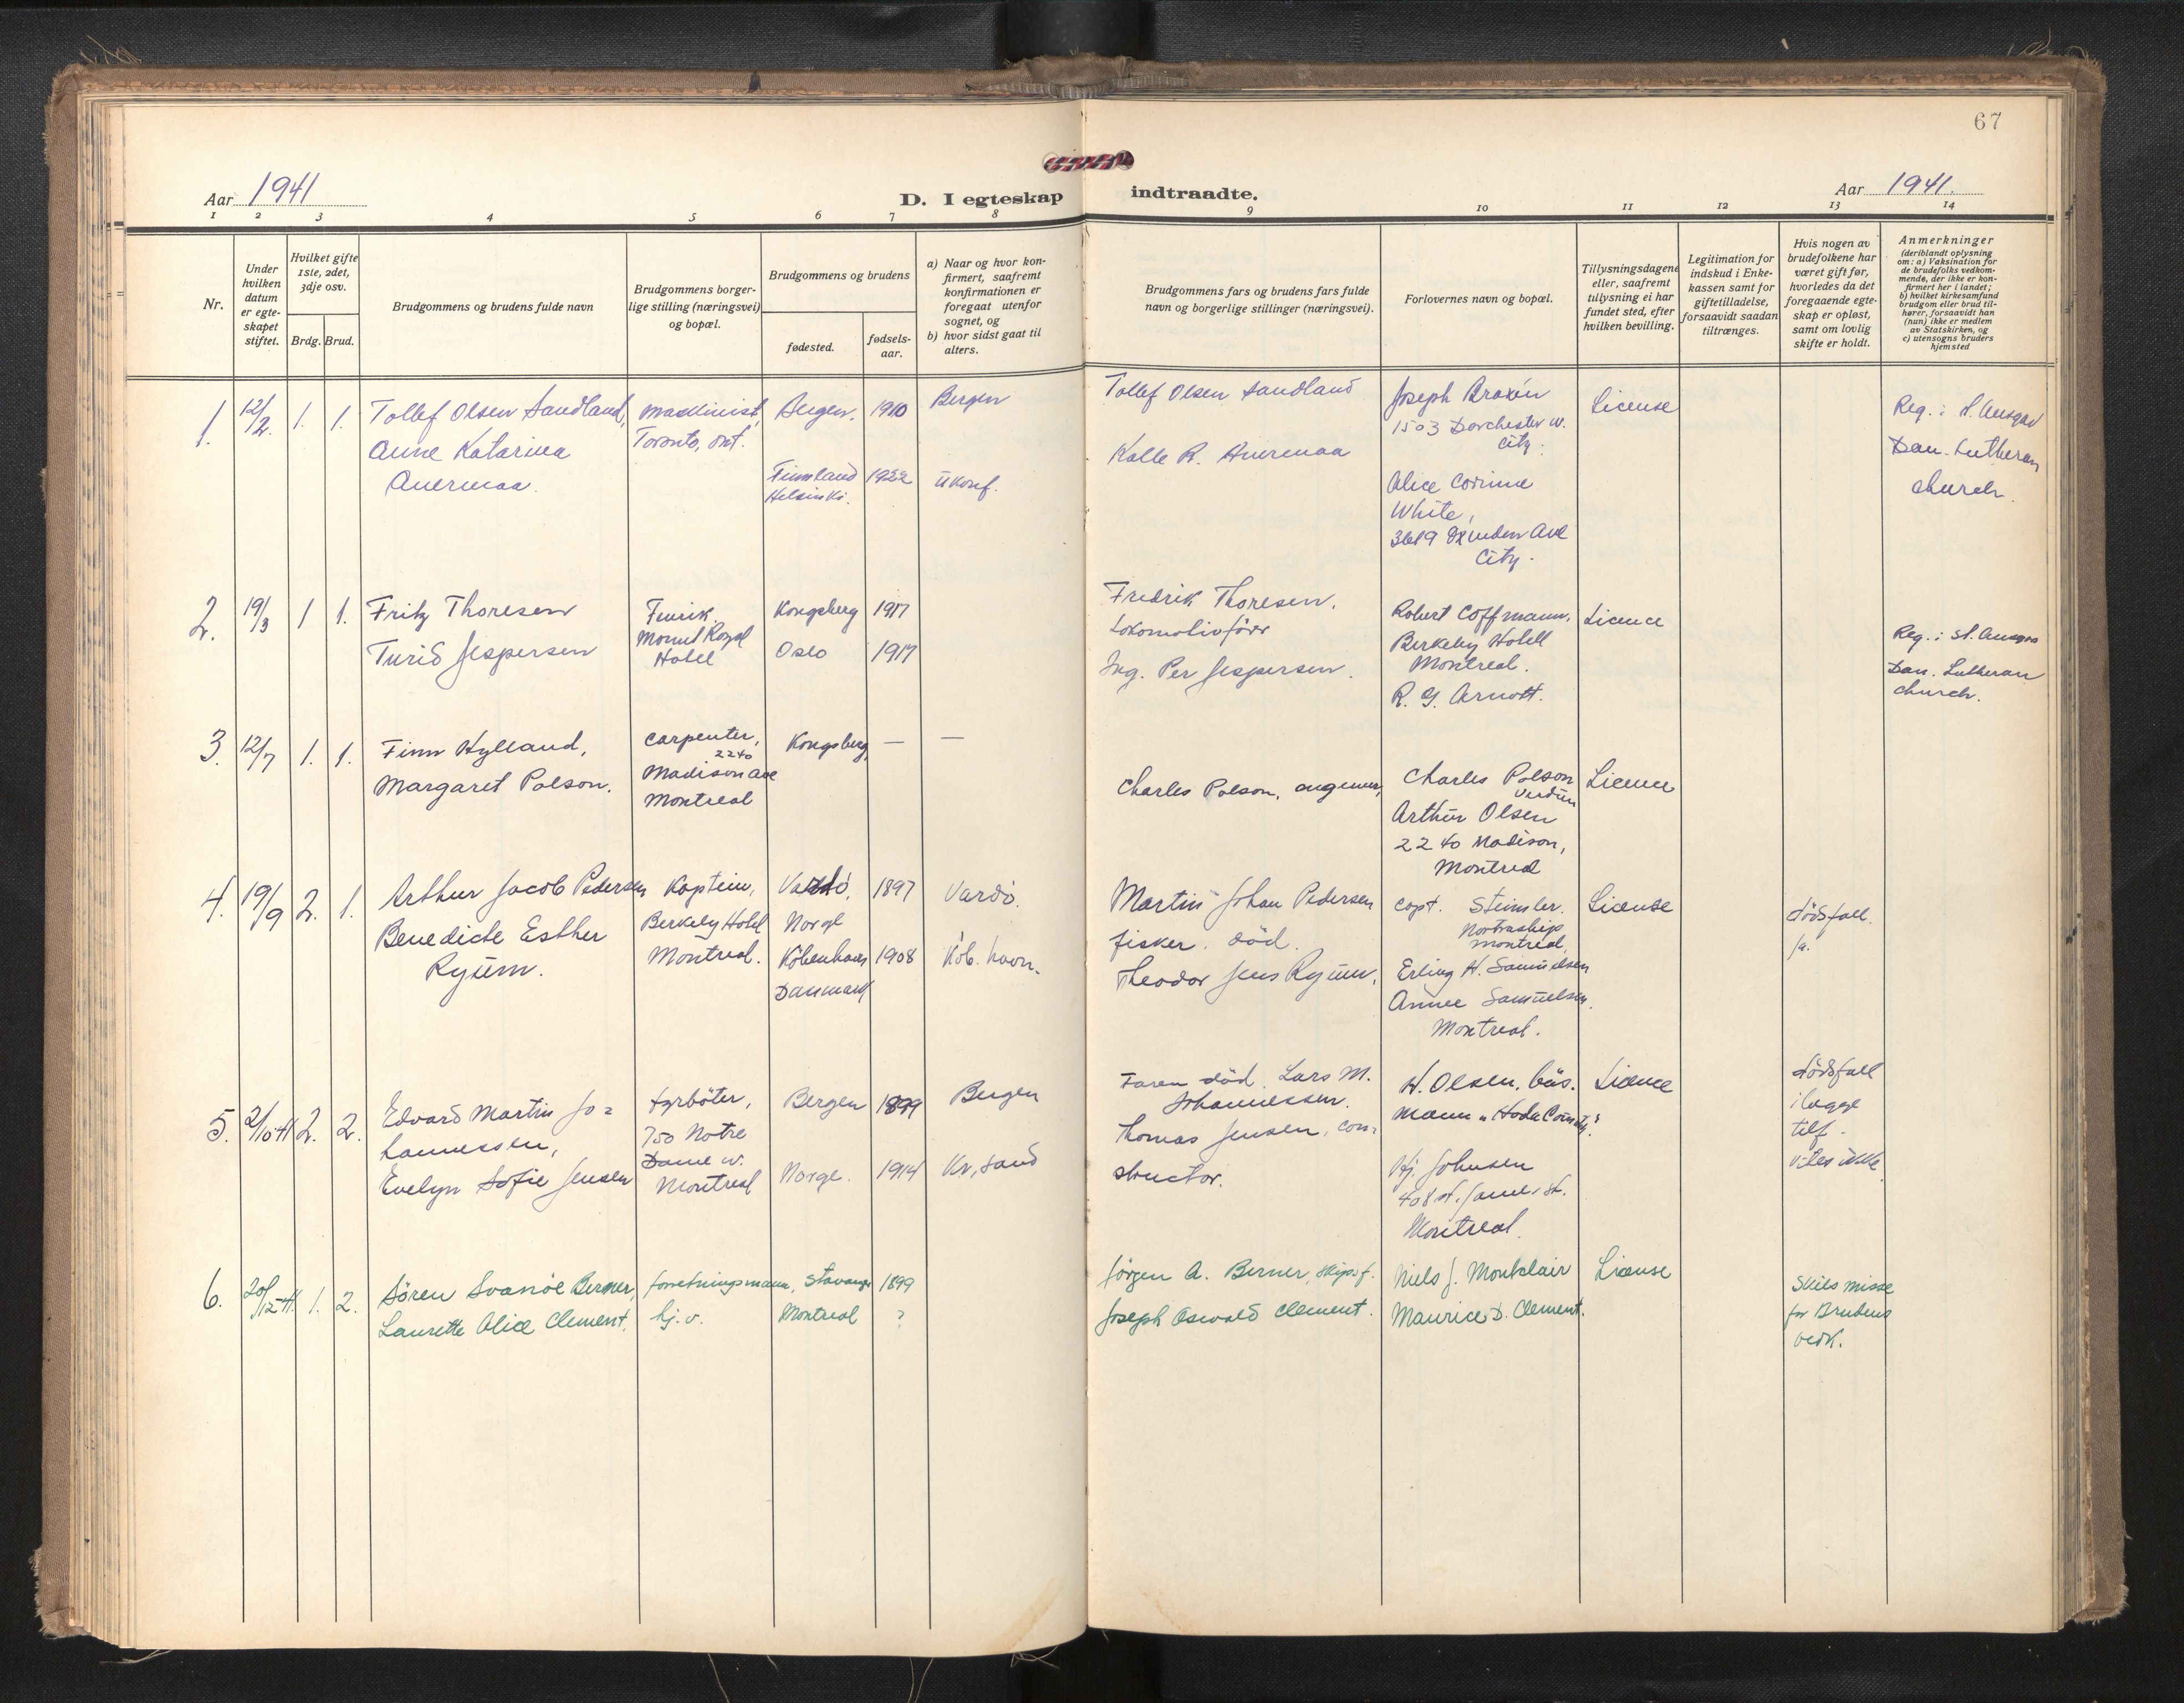 67
Aar 1941
D. I egteskap indtraadte.
Aar 1941.
1 2 3 4 5 6 7 8 9 10 11 12 13 14
Nr.
Under hvilken datum er egte-skapet stiftet.
Hvilket gifte 1ste, 2det, 3dje osv.
Brdg. Brud.
Brudgommens og brudens fulde navn
Brudgommens borger-
lige stilling (næringsvei)
og bopæl.
Brudgommens og brudens
fødested.
fødsels-
aar.
a) Naar og hvor kon-
firmert, saafremt
konfirmationen er
foregaat utenfor
sognet, og
b) hvor sidst gaat til
alters.
Brudgommens fars og brudens fars fulde
navn og borgerlige stillinger (næringsvei).
Forlovernes navn og bopæl.
Tillysningsdagene
eller, saafremt
tillysning ei har
fundet sted, efter
hvilken bevilling.
Legitimation for
indskud i Enke-
kassen samt for
giftetilladelse,
forsaavidt saadan
tiltrænges.
Hvis nogen av
brudefolkene har
været gift før,
hvorledes da det
foregaaende egte-
skap er opløst,
samt om lovlig
skifte er holdt.
Anmerkninger
(deriblandt oplysning
om: a) Vaksination for
de brudefolks vedkom-
mende, der ikke er kon-
firmert her i landet;
b) hvilket kirkesamfund
brudgom eller brud til-
hører, forsaavidt han
(hun) ikke er medlem
av Statskirken, og
c) utensogns bruders
hjemsted
1. 12/2. 1. 1.
Tollef Olsen Sandland,
Anne Katarina
Auermaa.
Maskinist,
Toronto, Ont.
Bergen. 1910
Bergen
Finnland 1922
Helsinki.
Ukonf.
Tollef Olsen Sandland
Kalle R. Auermaa
Joseph Braxén
1503 Dorchester W.
City.
Alice Corinne
White,
Ave
City.
License
Reg.: St. Ansgar
Dan. Lutheran
church.
2. 19/3 1 1.
Fritz Thoresen
Turid Jespersen
Fenrik,
Mount Royal
Hotel
Kongsberg 1917
Oslo 1917
Fredrik Thoresen.
Lokomotivfører
Ing. Per Jespersen.
Robert Coffmann,
Berkeley Hotell
Montreal.
R. G. Arnott.
Licence
Reg.: St. Ansgar
Dan. Lutheran
church.
3. 12/7 1. 1.
Finn Hylland,
Margaret Polson.
Carpenter,
2240
Madison Ave
Montreal
Kongsberg, — —
Charles Polson,
Charles Polson
Verdun
Arthur Olsen
2240 Madison,
Montreal
Licence
4. 19/9 2. 1.
Arthur Jacob Pedersen
Benedicte Esther
Ryum.
Kaptein,
Berkely Hotel
Montreal.
Vardö, 1897
Norge
Köbenhavn 1908
Danmark
Vardö.
Köb.havn.
Martin Johan Pedersen
fisker. död.
Theodor Jens Ryum.
Capt. Steimler.
Nortraship
Montreal,
Erling H. Samuelsen
Annee Samuelsen.
Montreal.
License
dödsfall.
Ja.
5. 2/10-41 2. 2.
Edvard Martin Jo=
hannessen,
Evelyn Sofie Jensen
fyrböter,
750 Notre
Dame W.
Montreal
Bergen 1899
Norge. 1914
Bergen
Kr. sand
Faren död. Lars M.
Johannessen.
Thomas Jensen, con=
structor.
H. Olsen, bås.
mann "Hada County"
Hj. Johnsen
408 St. James St.
Montreal.
Licence
dödsfall
i begge
tilf.
vites ikke
6. 20/12-41. 1. 2.
Sören Svanöe Berner,
Laurette Alice Clement.
forretningsmann,
hj. v.
Stavanger 1899
Montreal ?
Jörgen A. Berner, skipsf.
Joseph Oswald Clement.
Niels J. Montclair
Maurice D. Clement.
License
Skilsmisse
for Brudens
vedk.